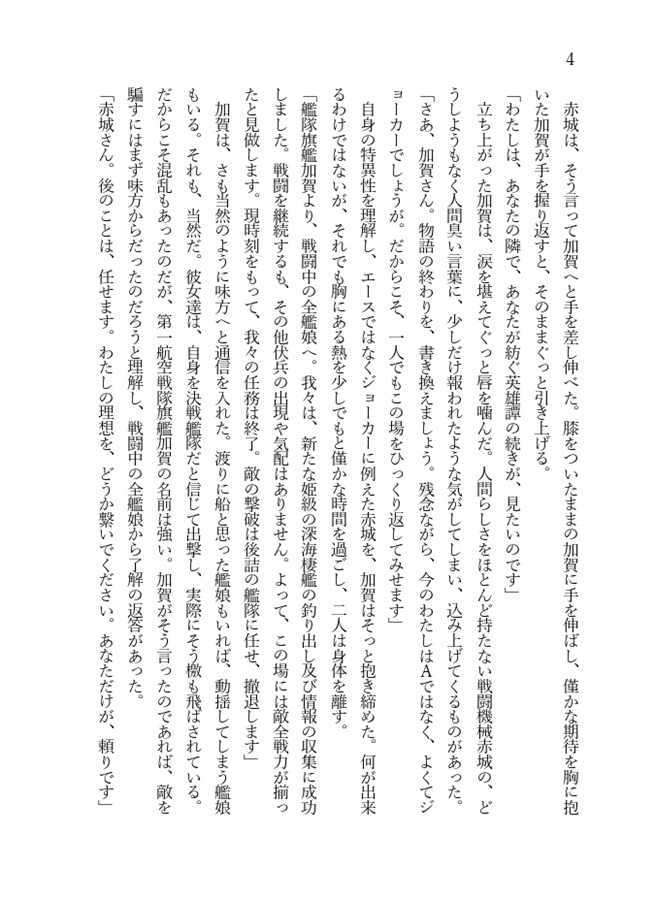 4
赤城は、そう言って加賀へと手を差し伸べた。膝をついたままの加賀に手を伸ばし、僅かな期待を胸に抱
いた加賀が手を握り返すと、そのままぐっと引き上げる。
「わたしは、あなたの隣で、あなたが紡ぐ英雄譚の続きが、見たいのです」
立ち上がった加賀は、涙を堪えてぐっと唇を噛んだ。人間らしさをほとんど持たない戦闘機械赤城の、ど
うしようもなく人間臭い言葉に、少しだけ報われたような気がしてしまい、込み上げてくるものがあった。
「さあ、加賀さん。物語の終わりを、書き換えましょう。残念ながら、今のわたしはAではなく、よくてジ
ョーカーでしょうが。だからこそ、一人でもこの場をひっくり返してみせます」
自身の特異性を理解し、エースではなくジョーカーに例えた赤城を、加賀はそっと抱き締めた。何が出来
るわけではないが、それでも胸にある熱を少しでもと僅かな時間を過ごし、二人は身体を離す。
「艦隊旗艦加賀より、戦闘中の全艦娘へ。我々は、新たな姫級の深海棲艦の釣り出し及び情報の収集に成功
しました。戦闘を継続するも、その他伏兵の出現や気配はありません。よって、この場には敵全戦力が揃っ
たと見做します。現時刻をもって、我々の任務は終了。敵の撃破は後詰の艦隊に任せ、撤退します」
加賀は、さも当然のように味方へと通信を入れた。渡りに船と思った艦娘もいれば、動揺してしまう艦娘
もいる。それも、当然だ。彼女達は、自身を決戦艦隊だと信じて出撃し、実際にそう檄も飛ばされている。
だからこそ混乱もあったのだが、第一航空戦隊旗艦加賀の名前は強い。加賀がそう言ったのであれば、敵を
騙すにはまず味方からだったのだろうと理解し、戦闘中の全艦娘から了解の返答があった。
「赤城さん。後のことは、任せます。わたしの理想を、どうか繋いでください。あなただけが、頼りです」